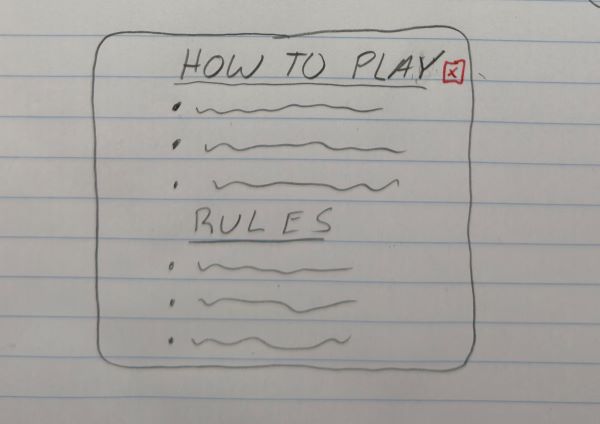 HOW TO PLAY x
RULES